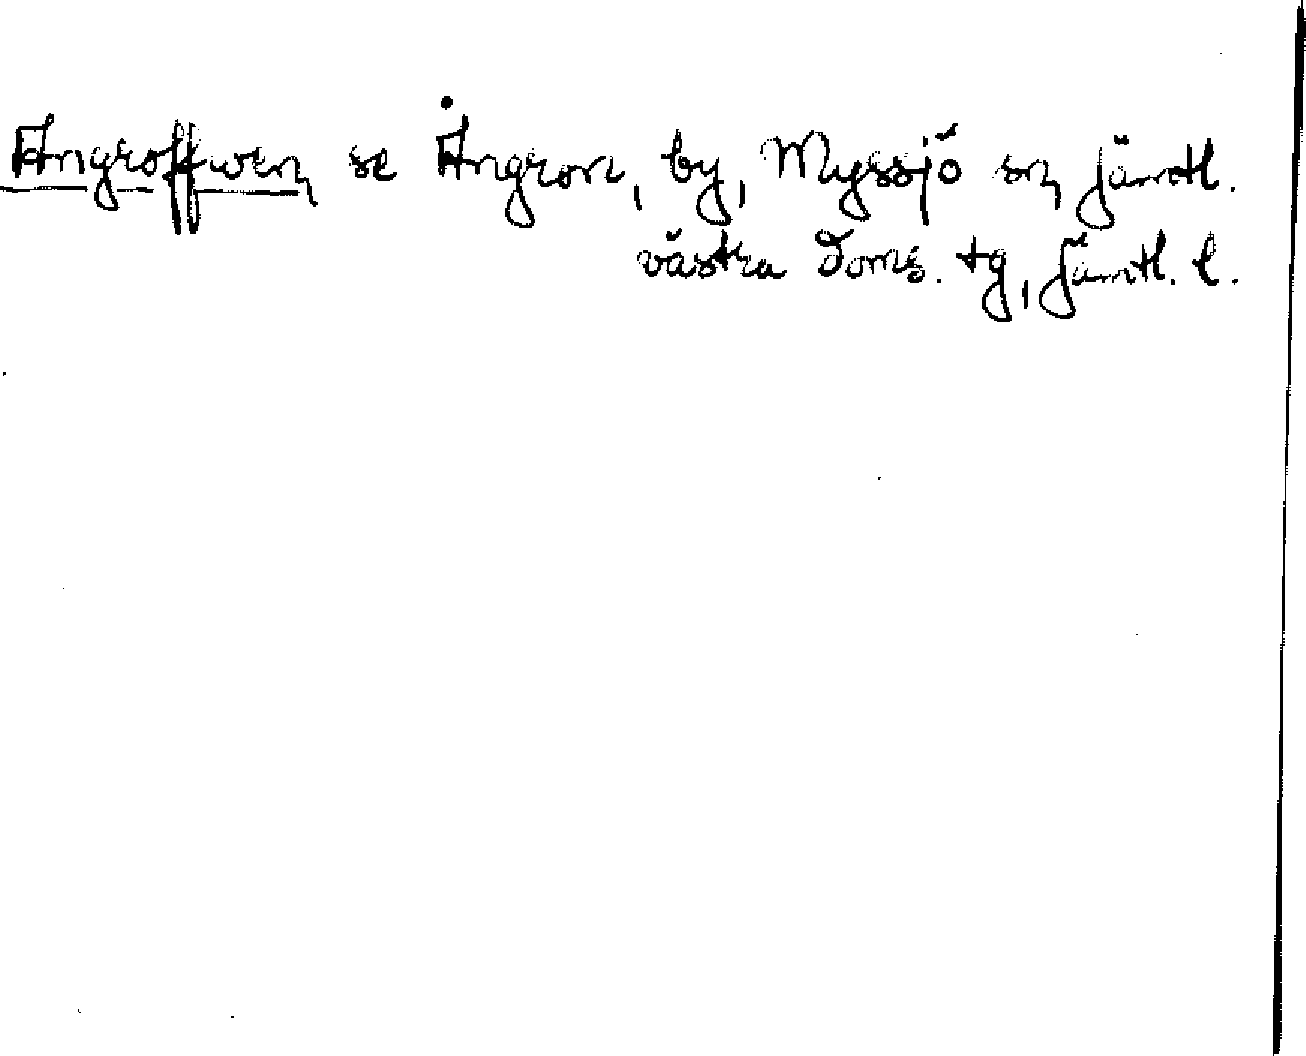 Angroffwen se Ångron, by, Myssjö sn, Jämtl.
västra doms. tg, Jämtl. l.